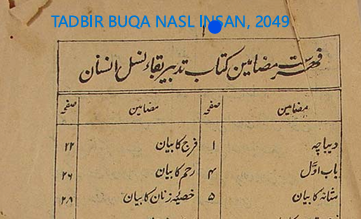 TADBIR BUQA NASL INSAN, 2049
فہرست مضامین کتاب تدبیر بقاء نسل انسان
مضامین صفحہ مضامین صفحہ
دیباچہ ۱ فرج کا بیان ۲۲
باب اوّل ۴ رحم کا بیان ۲۶
مثانہ کا بیان ۵ خصیۂ زنان کا بیان ۲۸